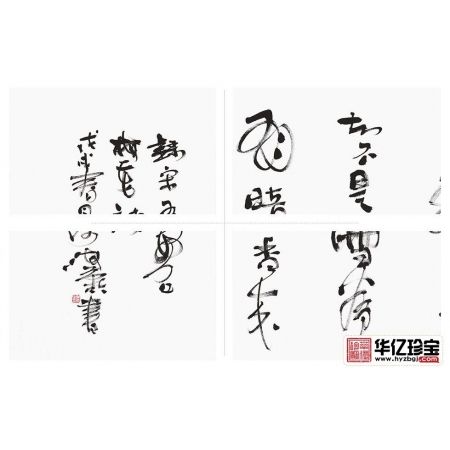 知不是雪為
有暗香来
録宋王安石
梅花詩
戊戌春月書
华亿珍宝
www.hyzbgj.com